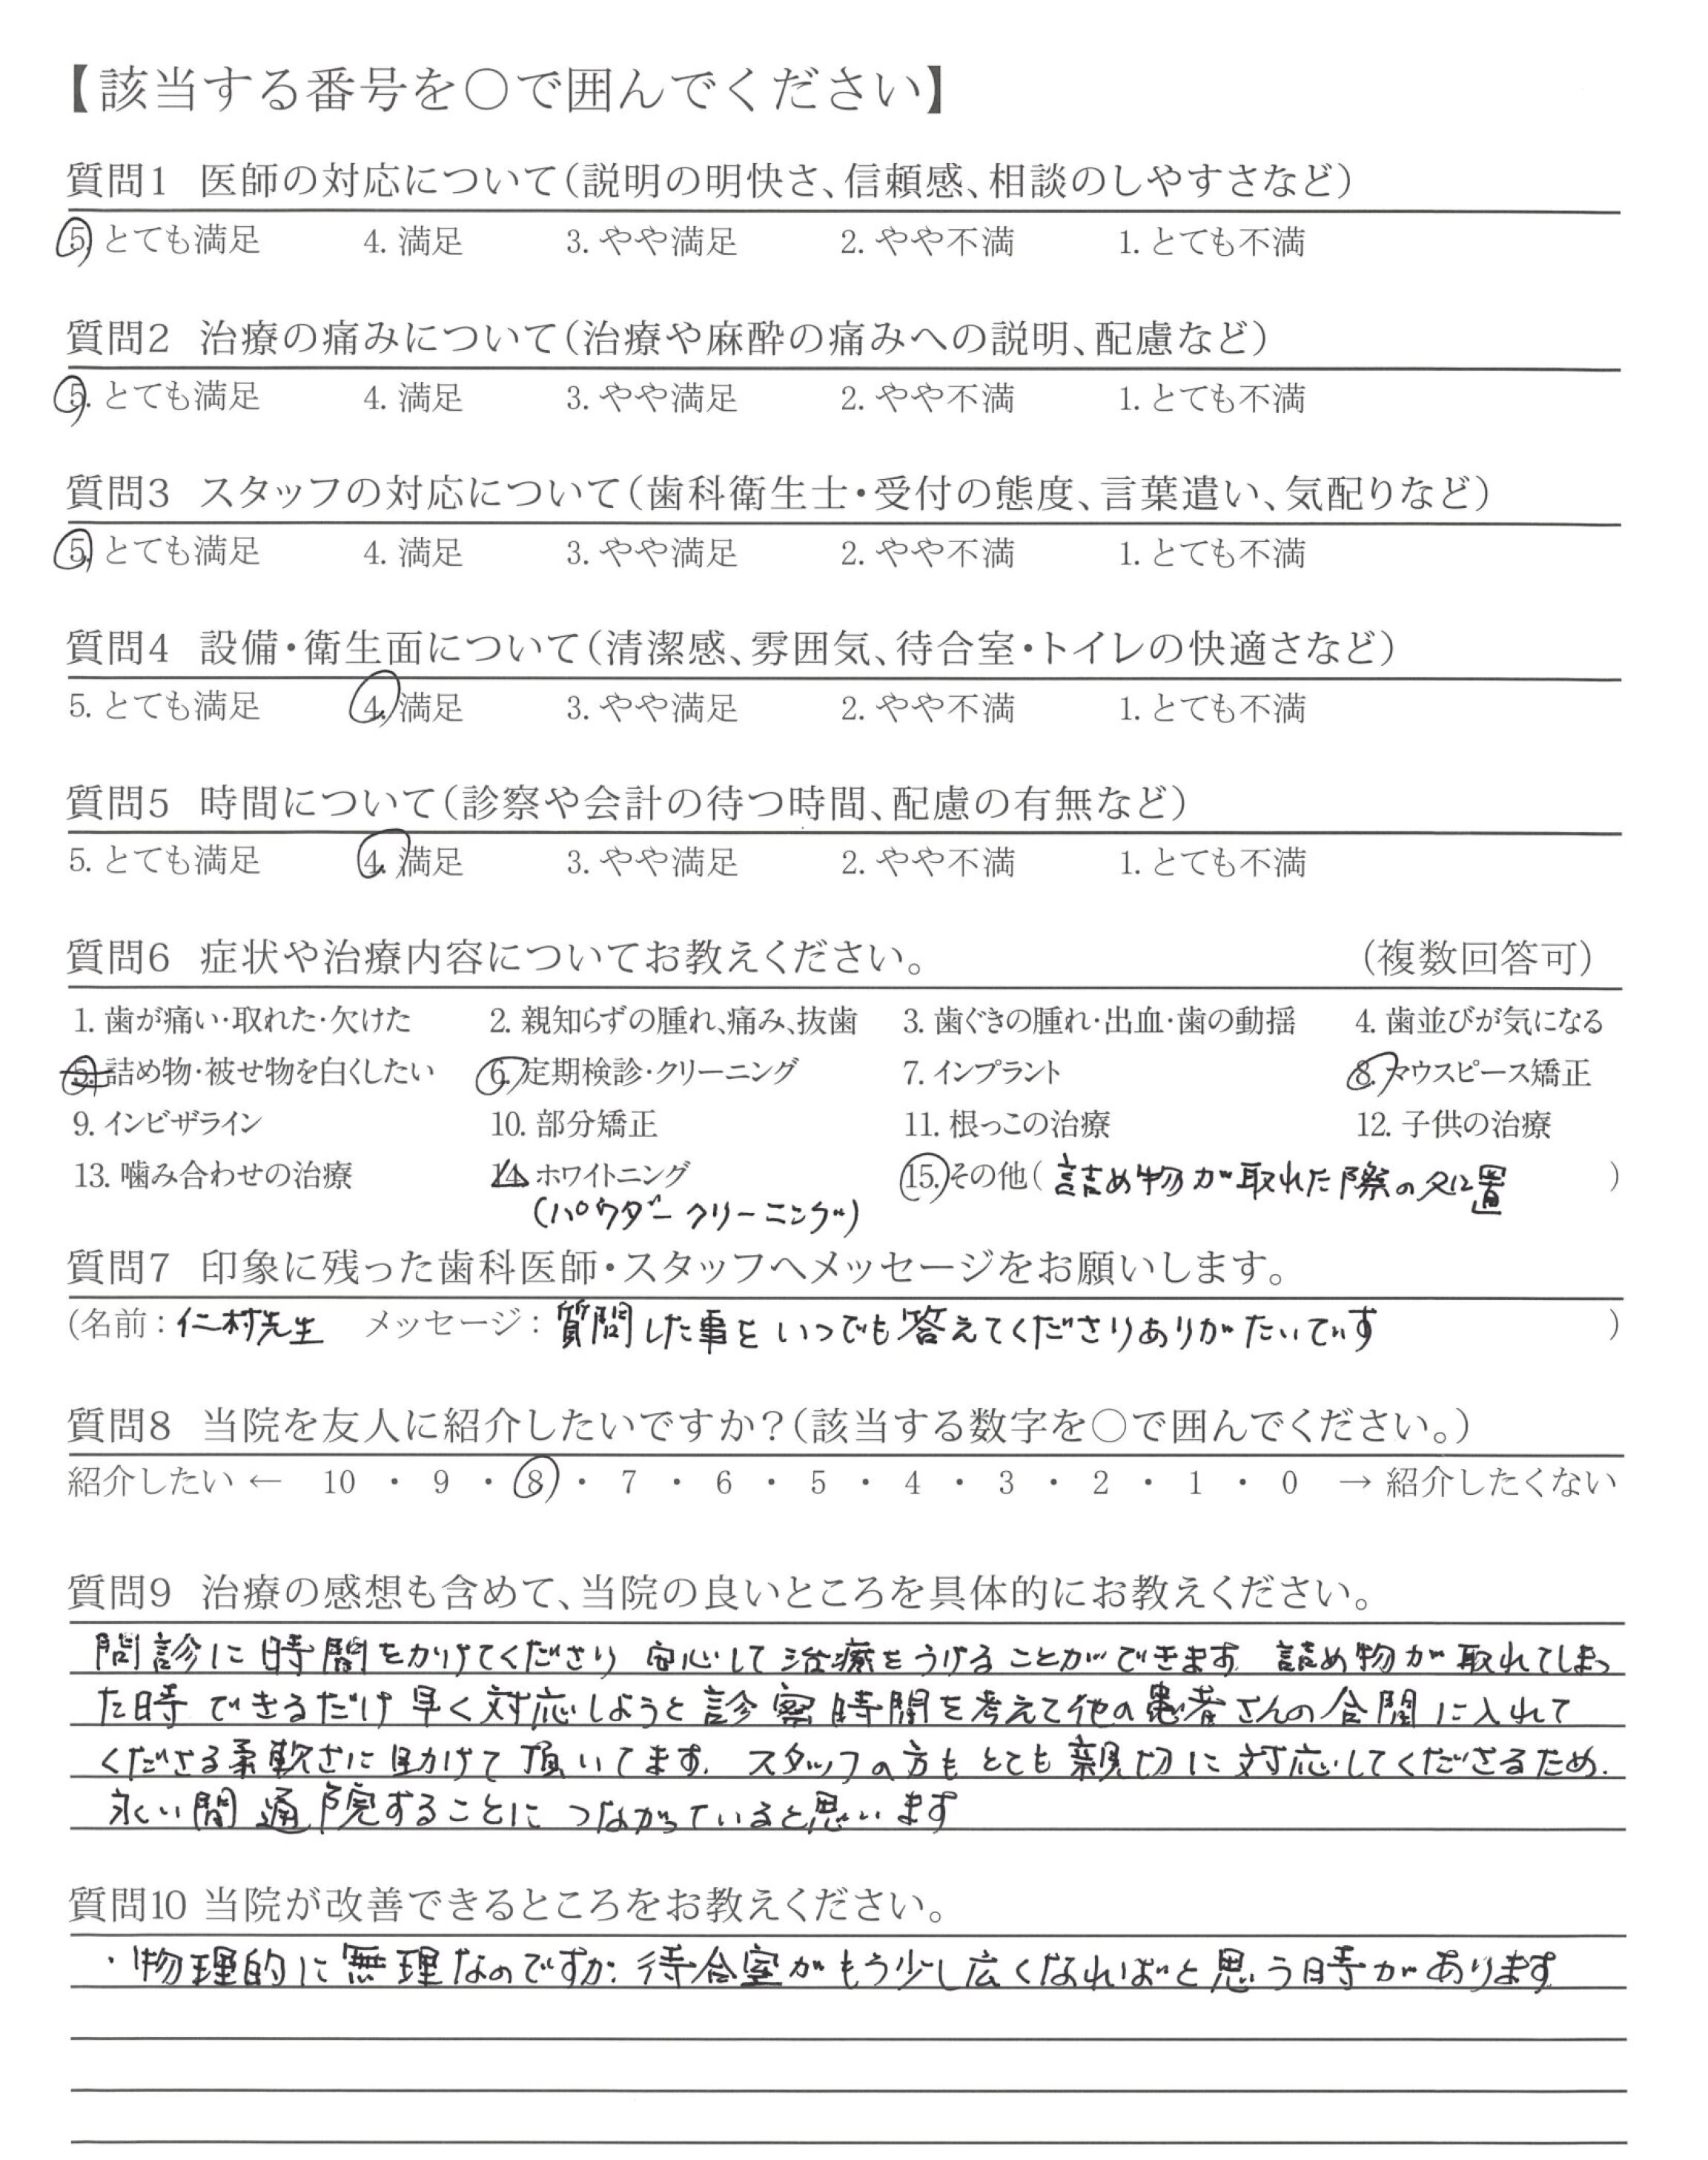 【該当する番号を○で囲んでください】
質問1 医師の対応について(説明の明快さ、信頼感、相談のしやすさなど)
5. とても満足 4. 満足 3. やや満足 2. やや不満 1. とても不満
質問2 治療の痛みについて(治療や麻酔の痛みへの説明、配慮など)
5. とても満足 4. 満足 3. やや満足 2. やや不満 1. とても不満
質問3 スタッフの対応について(歯科衛生士・受付の態度、言葉遣い、気配りなど)
5. とても満足 4. 満足 3. やや満足 2. やや不満 1. とても不満
質問4 設備・衛生面について(清潔感、雰囲気、待合室・トイレの快適さなど)
5. とても満足 4. 満足 3. やや満足 2. やや不満 1. とても不満
質問5 時間について(診察や会計の待つ時間、配慮の有無など)
5. とても満足 4. 満足 3. やや満足 2. やや不満 1. とても不満
質問6 症状や治療内容についてお教えください。 (複数回答可)
1. 歯が痛い・取れた・欠けた 2. 親知らずの腫れ、痛み、抜歯 3. 歯ぐきの腫れ・出血・歯の動揺 4. 歯並びが気になる
5. 詰め物・被せ物を白くしたい 6. 定期検診・クリーニング 7. インプラント 8. マウスピース矯正
9. インビザライン 10. 部分矯正 11. 根っこの治療 12. 子供の治療
13. 噛み合わせの治療 14. ホワイトニング 15. その他( 詰め物が取れた際の処置 )
(パウダークリーニング)
質問7 印象に残った歯科医師・スタッフへメッセージをお願いします。
(名前:仁村先生 メッセージ:質問した事をいつでも答えてくださりありがたいです )
質問8 当院を友人に紹介したいですか?(該当する数字を○で囲んでください。)
紹介したい ← 10 ・ 9 ・ 8 ・ 7 ・ 6 ・ 5 ・ 4 ・ 3 ・ 2 ・ 1 ・ 0 → 紹介したくない
質問9 治療の感想も含めて、当院の良いところを具体的にお教えください。
問診に時間をかけてくださり 安心して治療をうけることができます 詰め物が取れてしまっ
た時 できるだけ早く対応しようと診察時間を考えて他の患者さんの合間に入れて
くださる柔軟さに助けて頂いてます. スタッフの方もとても親切に対応してくださるため.
永い間通院することにつながっていると思います
質問10 当院が改善できるところをお教えください。
・物理的に無理なのですが. 待合室がもう少し広くなればと思う時があります